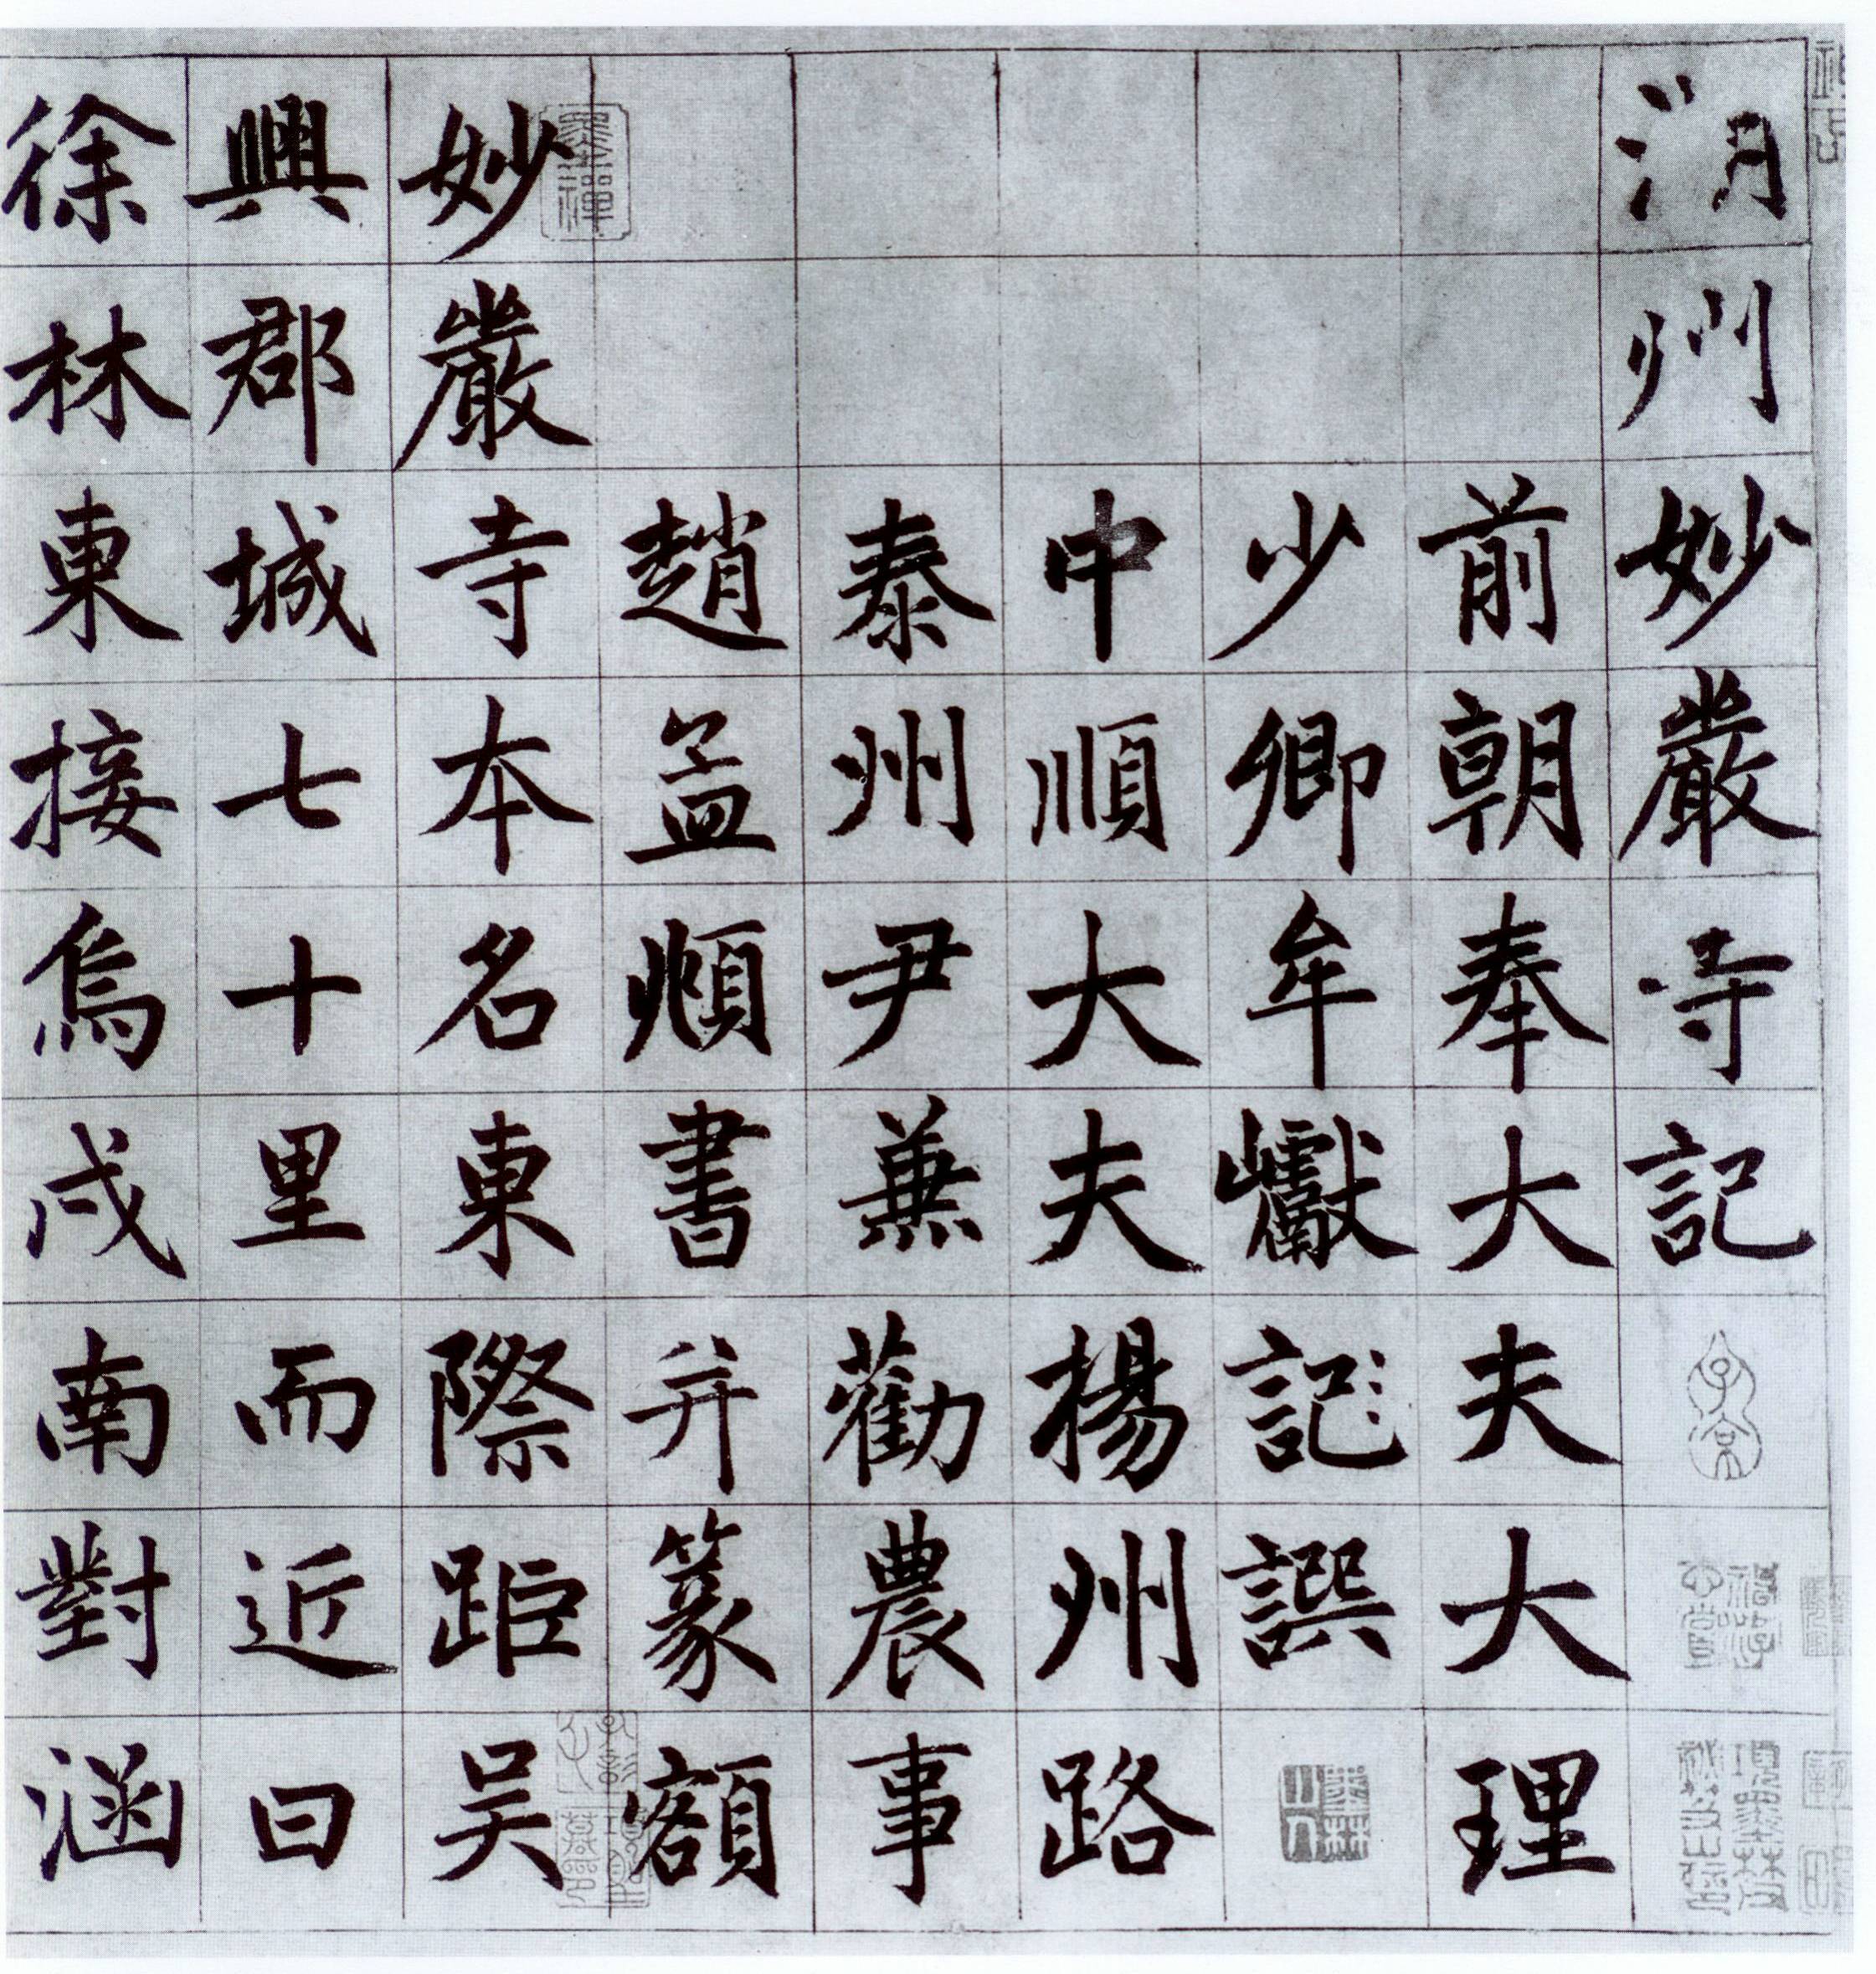 湖州妙嚴寺記
前朝奉大夫大理
少卿牟巘記譔
中順大夫揚州路
泰州尹兼勸農事
趙孟頫書并篆額
妙嚴寺本名東際距吴
興郡城七十里而近曰
徐林東接烏戍南對涵